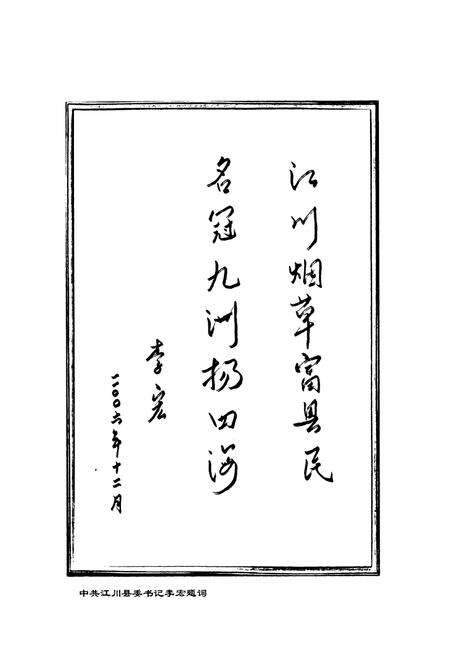 江川烟草富县民
名冠九洲扬四海
李宏
二〇〇六年十二月
中共江川县委书记李宏题词